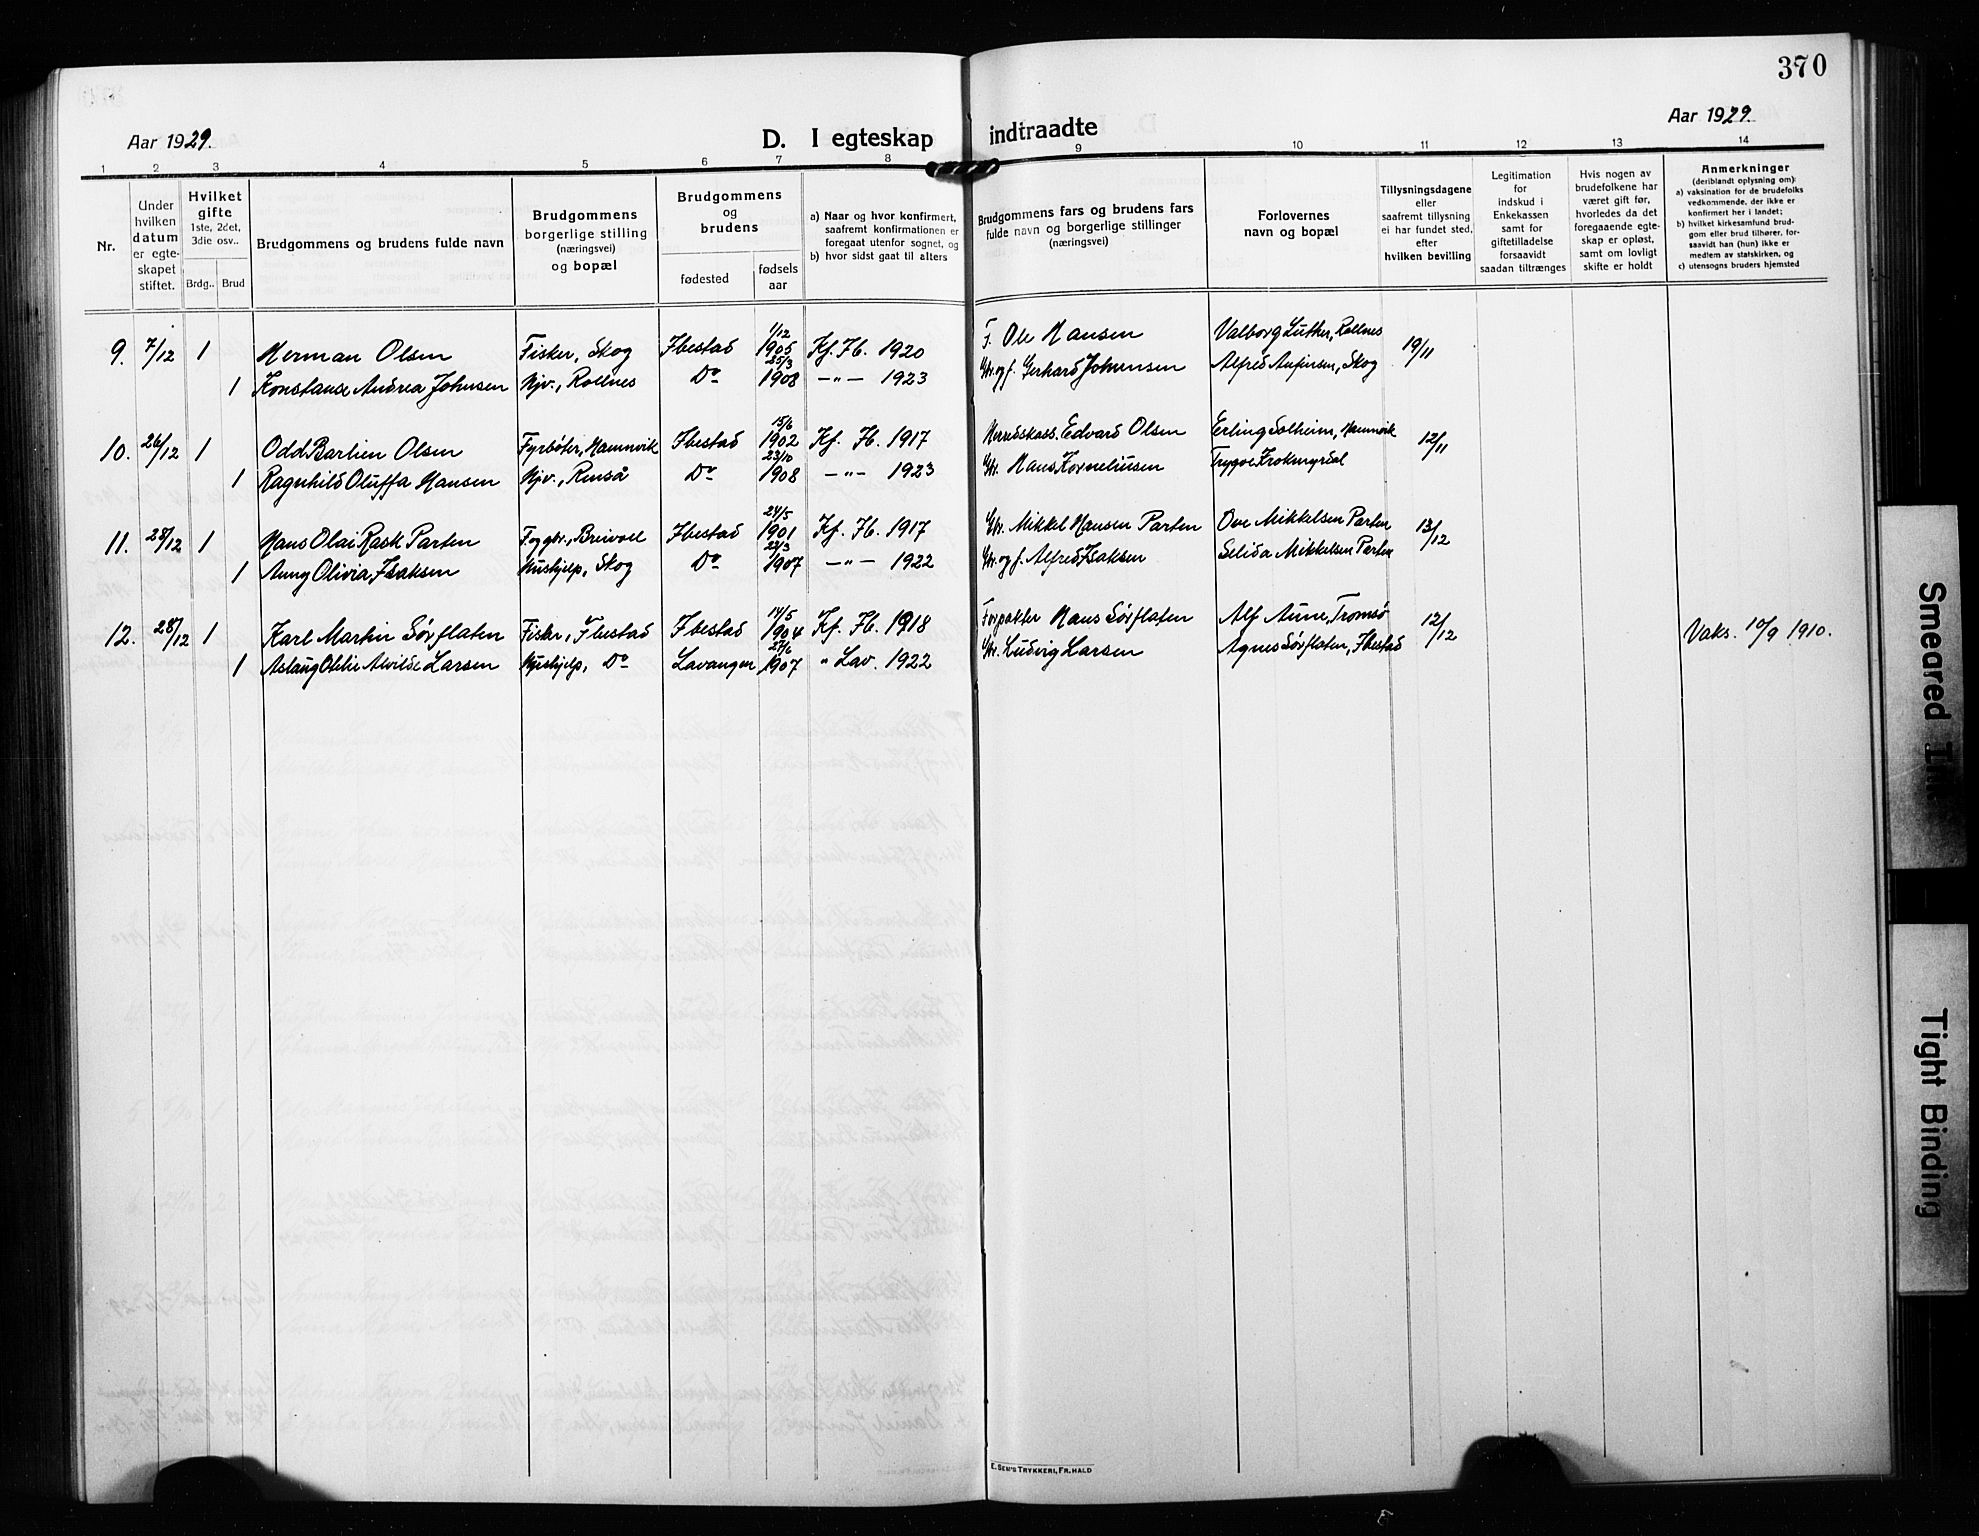 370
Aar 1929.
D. I egteskap indtraadte
Aar 1929.
1 2 3 4 5 6 7 8 9 10 11 12 13 14
Nr.
Under hvilken datum er egteskapet stiftet.
Hvilket gifte 1ste, 2det, 3die osv..
Brdg.. Brud
Brudgommens og brudens fulde navn
Brudgommens borgerlige stilling (næringsvei) og bopæl
Brudgommens og brudens
fødested
fødsels aar
a) Naar og hvor konfirmert, saafremt konfirmationen er foregaat utenfor sognet, og
b) hvor sidst gaat til alters
Brudgommens fars og brudens fars fulde navn og borgerlige stillinger (næringsvei)
Forlovernes navn og bopæl
Tillysningsdagene eller saafremt tillysning ei har fundet sted, efter hvilken bevilling
Legitimation for indskud i Enkekassen samt for giftetilladelse forsaavidt saadan tiltrænges
Hvis nogen av brudefolkene har været gift før, hvorledes da det foregaaende egteskap er opløst, samt om lovligt skifte er holdt
Anmerkninger
(deriblandt oplysning om):
a) vaksination for de brudefolks vedkommende, der ikke er konfirmert her i landet;
b) hvilket kirkesamfund brudgom eller brud tilhører, forsaavidt han (hun) ikke er medlem av statskirken, og
c) utensogns bruders hjemsted
9. 7/12 1 Herman Olsen Fisker, Skog Ibestad 1/12 1905 Kf. Ib. 1920 F. Ole Hansen Valborg Luther, Rollnes 19/11
1 Konstanse Andrea Johnsen Hjv., Rollnes Do 25/3 1908 —"— 1923 Gbr. og f. Gerhard Johnsen Alfred Anfinsen, Skog
10. 26/12 1 Odd Bartien Olsen Fyrbøter, Hamnvik Ibestad 15/6 1902 Kf. Ib. 1917 Herredskass. Edvard Olsen Erling Solheim, Hamnvik 12/11
1 Ragnhild Oluffa Hansen Hjv., Renså Do 23/10 1908 —"— 1923 Gbr. Hans Korneliusen Trygve Krokmyrdal
11. 28/12 1 Hans Olai Rask Parten Ibestad 24/5 1901 Kf. Ib. 1917 Gbr. Mikkel Hansen Parten Ove Mikkelsen Parten 13/12
1 Anny Olivia Isaksen Hushjelp, Skog Do 22/3 1907 —"— 1922 Gbr. og f. Alfred Isaksen Selida Mikkelsen Parten
12. 28/12 1 Karl Martin Sørflaten Fisker, Ibestad Ibestad 14/5 1904 Kf. Ib. 1918 Forpakter Hans Sørflaten Alf Aune, Tromsø 12/12 Vaks. 10/9 1910.
1 Aslaug Otelie Alvilde Larsen Hushjelp, Do Lavangen 27/6 1907 " Lav. 1922 Gbr. Ludvig Larsen Agnes Sørflaten, Ibestad
E. SEM'S TRYKKERI, FR.HALD
Smeared Ink
Tight Binding